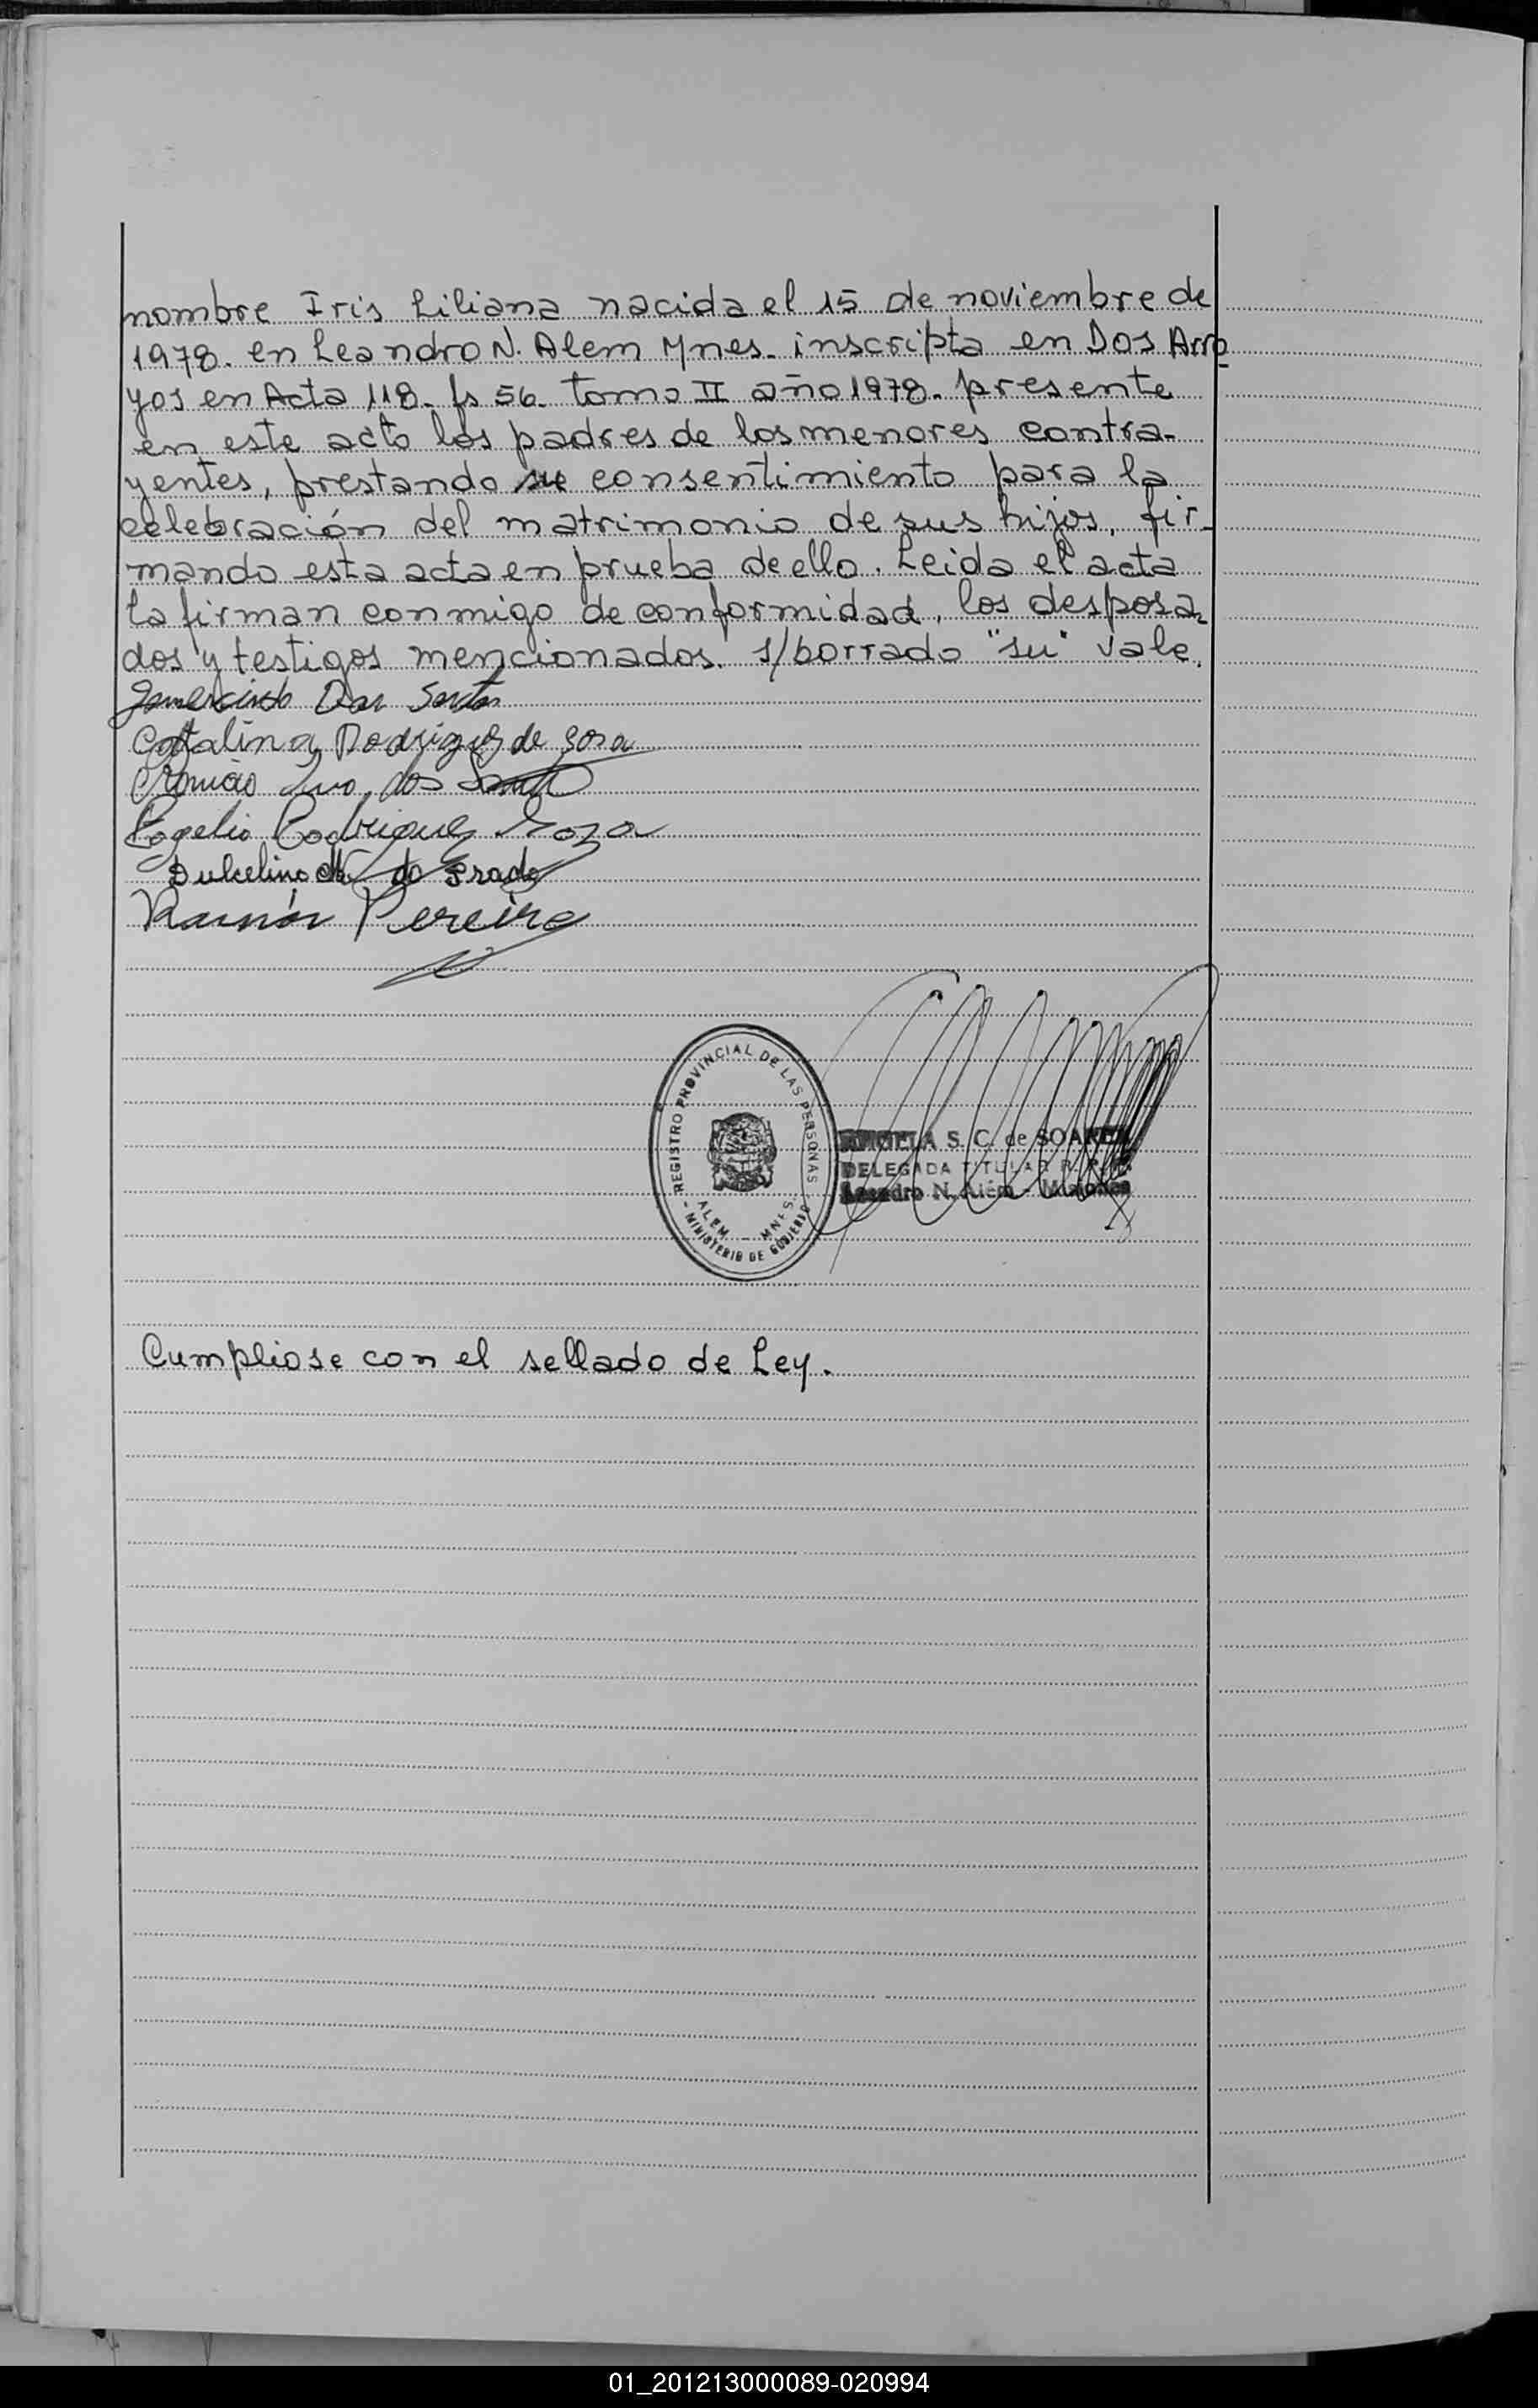 nombre Iris Liliana nacida el 15 de noviembre de
1978. en Leandro N. Alem Mnes. inscripta en Dos Arro
yos en Acta 118. fs 56. tomo II año 1978. presente
en este acto los padres de los menores contra-
yentes, prestando su consentimiento para la
celebración del matrimonio de sus hijos, fir-
mando esta acta en prueba de ello. Leida el acta
la firman conmigo de conformidad, los desposa-
dos y testigos mencionados. s/borrado "su" vale.
Dos Santos
Catalina Rodriguez de Sosa
dos Santos
Rogelio Rodriguez Soza
Dulcelino do Prado
Ramón Pereira
REGISTRO PROVINCIAL DE LAS PERSONAS
ALEM - MNES.
- MINISTERIO DE GOBIERNO
S. C. de SOARES
DELEGADA TITULAR R. P.
Leandro N. Além - Misiones
Cumpliose con el sellado de Ley.
01_201213000089-020994